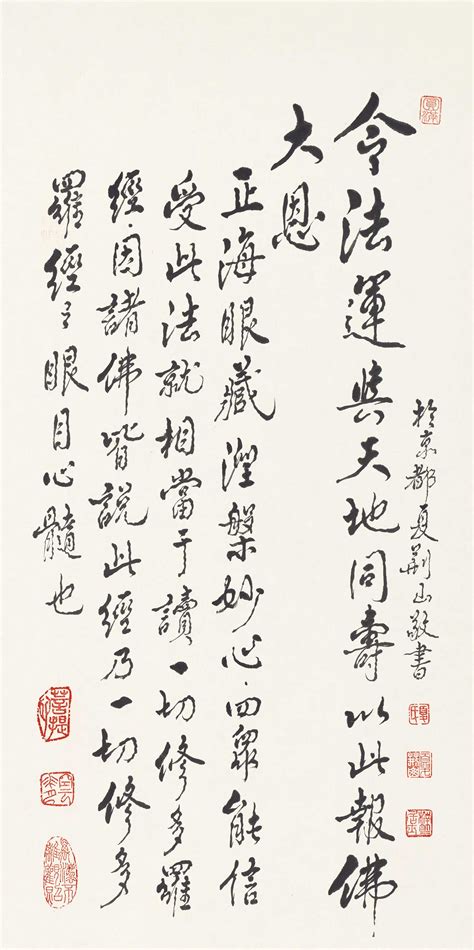 令法運與天地同壽以此報佛
大恩
正海眼藏涅槃妙心四眾能信
受此法就相當于讀一切修多羅
經因諸佛皆說此經乃一切修多
羅經之眼目心髓也
於京都夏荆山敬書